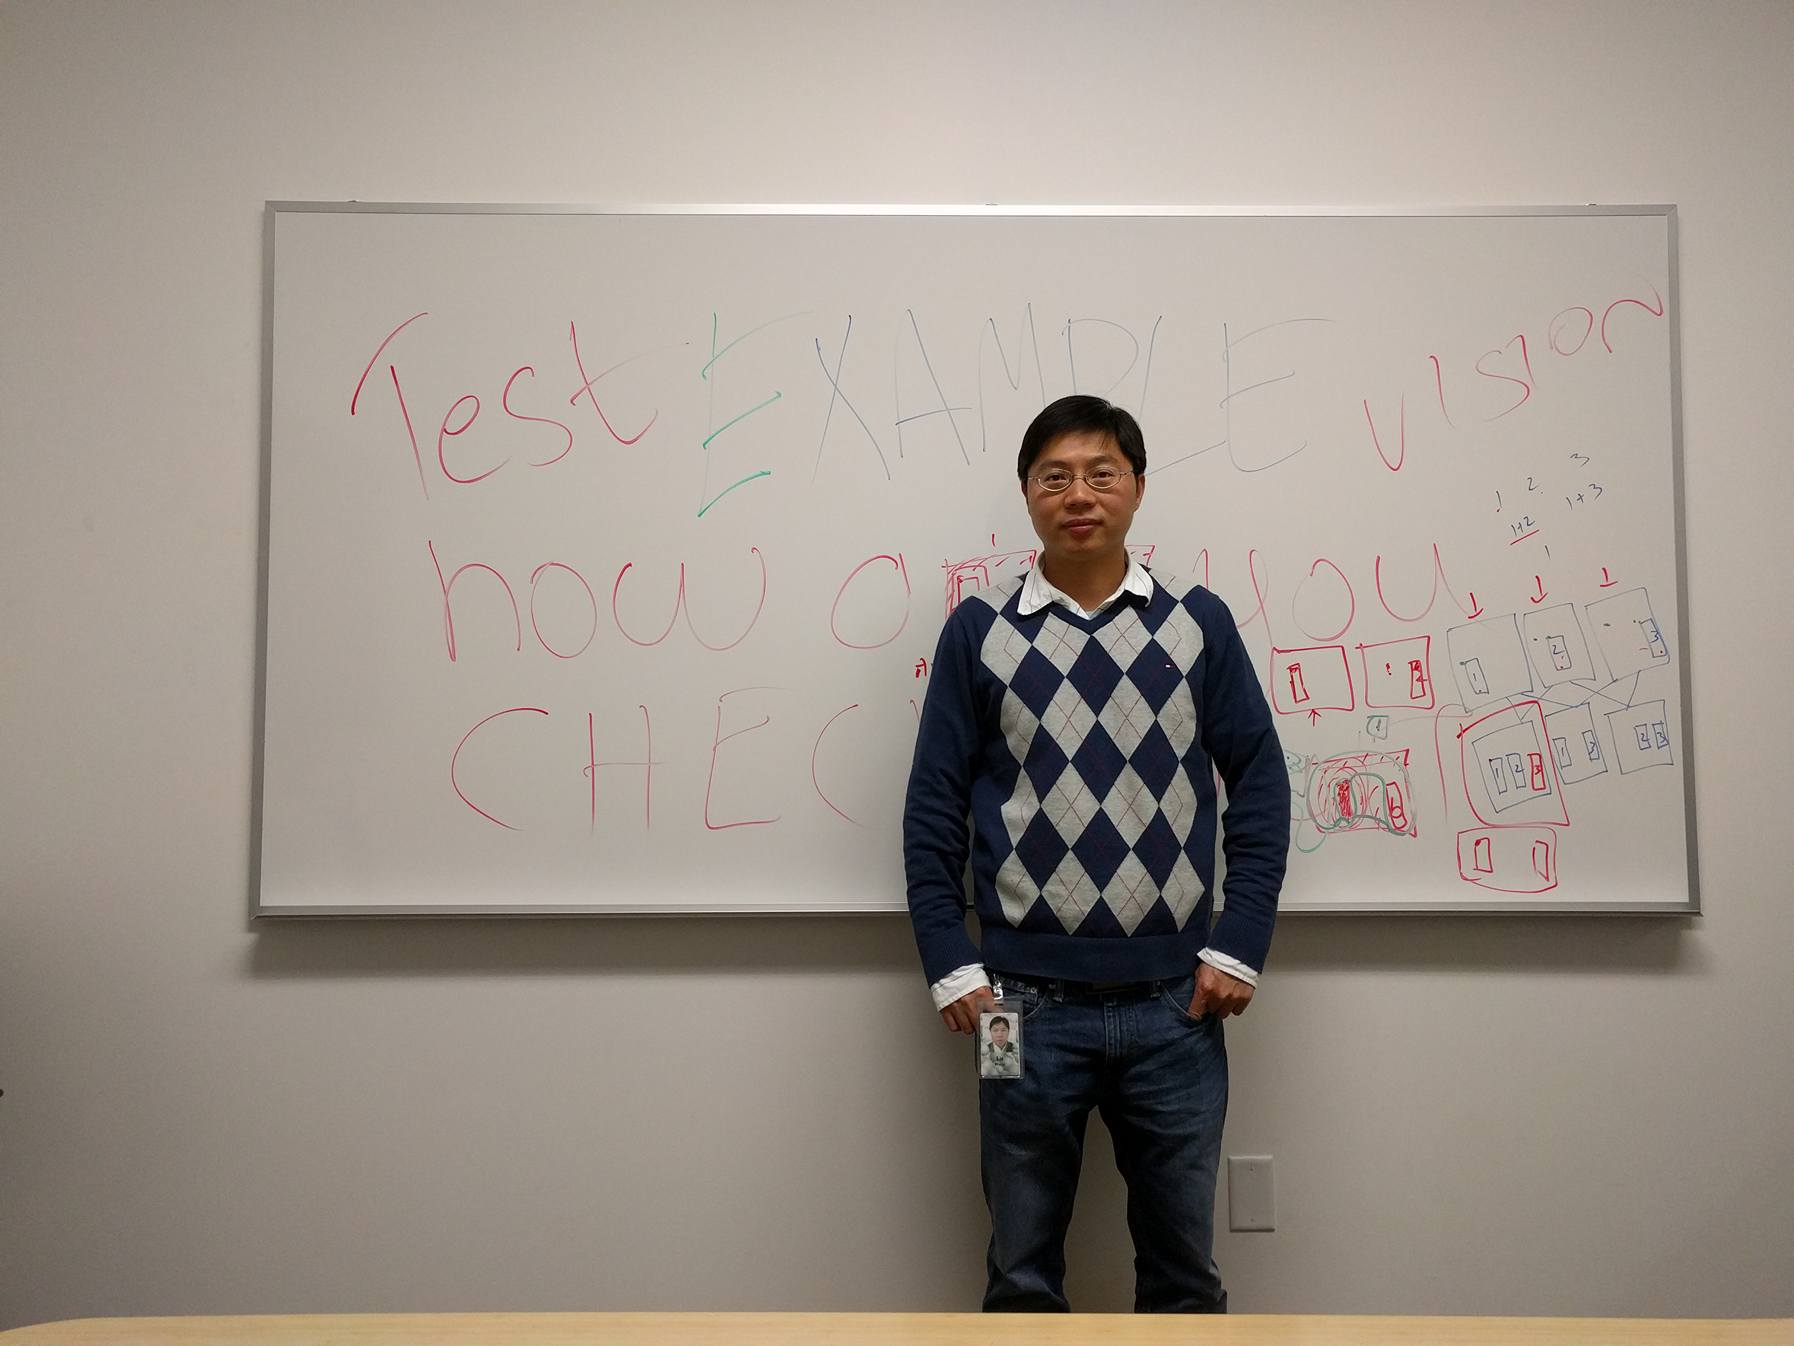 Test EXAMPLE vision
how a you
CHEC
1 2 3
1+2 1+3
1
1 2 3
1 2 3 1 3 2 3